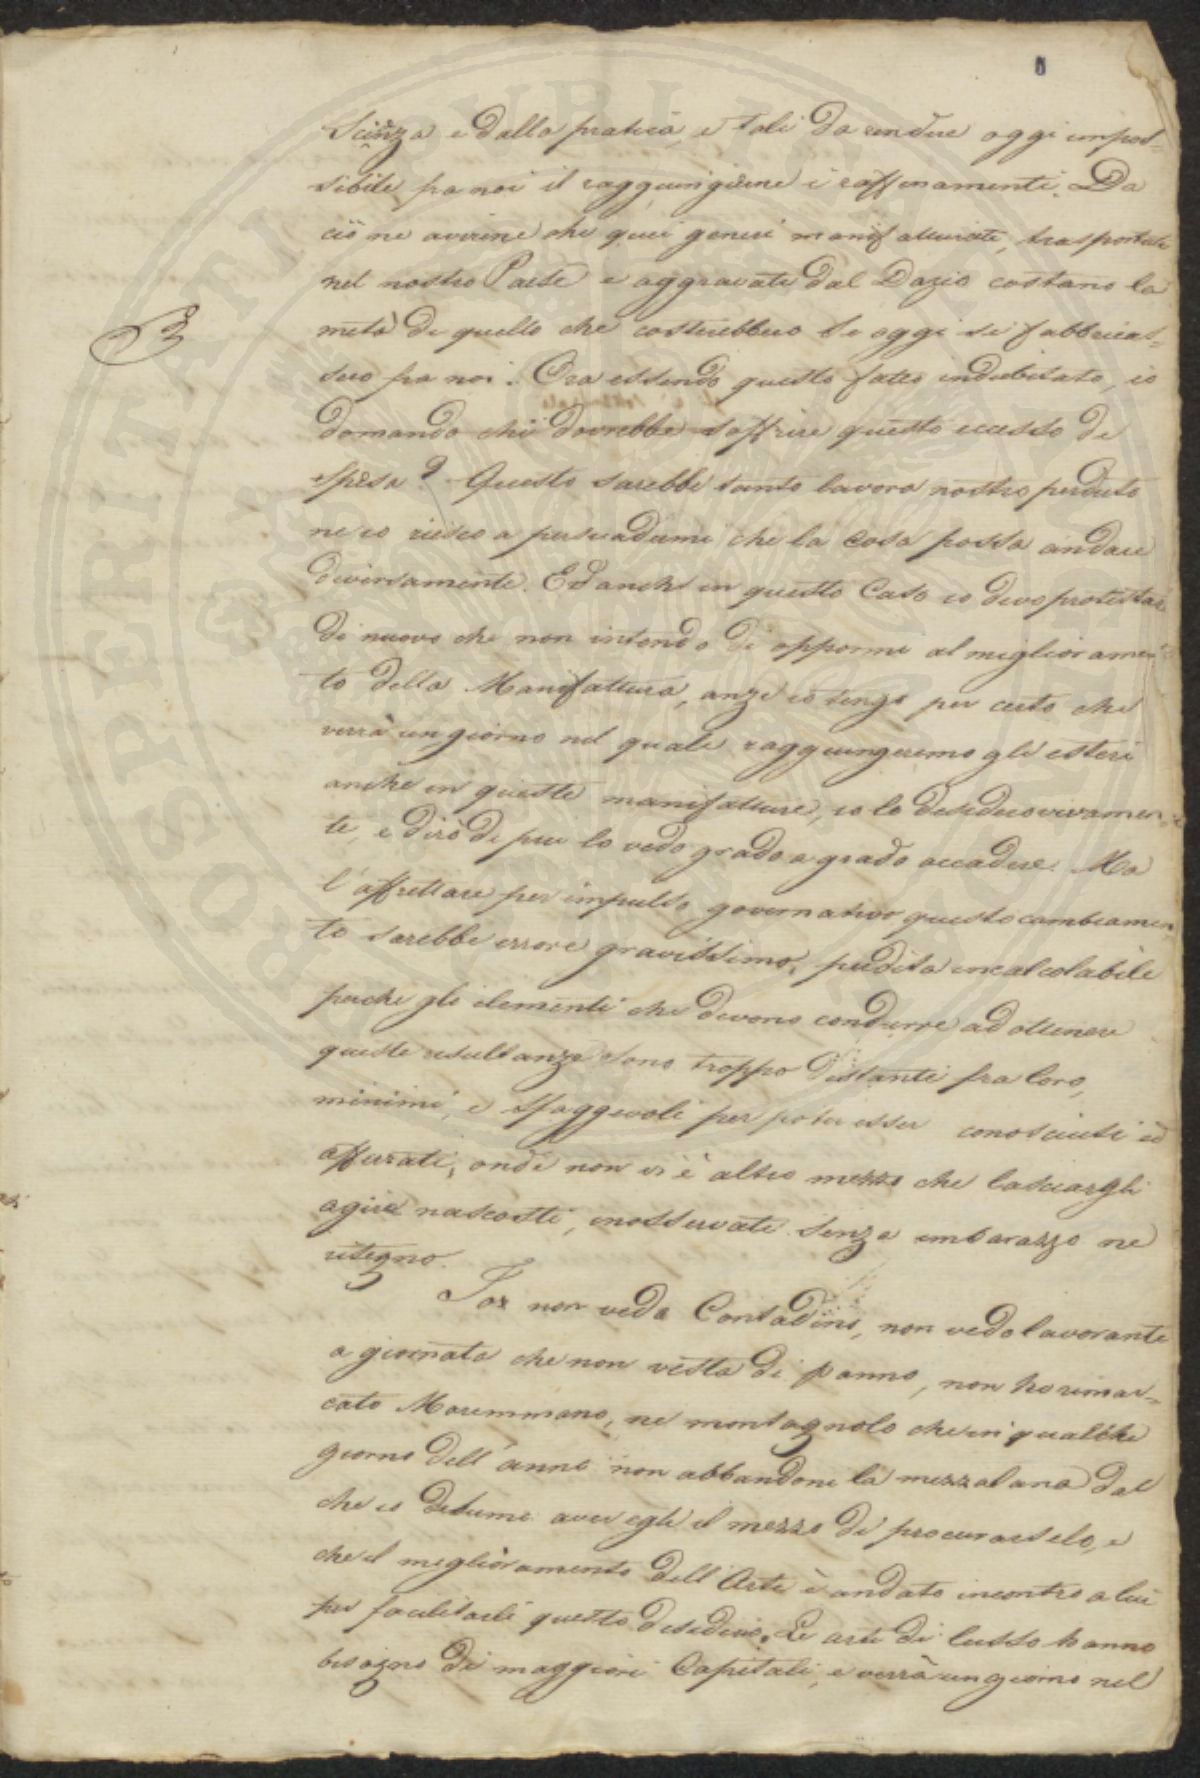 Scienza e dalla pratica, e tali da rendere oggi impos=
sibile fra noi il raggiungerne i raffinamenti. Da
ciò ne avviene che quei generi manifatturati, trasportati
nel nostro Paese e aggravati dal Dazio costano la
metà di quello che costerebbero se oggi si fabbricas=
B
sero fra noi. Ora essendo questo fatto indubitato, io
domando chi dovrebbe soffrire questo eccesso di
spesa? Questo sarebbe tanto lavoro nostro perduto
ne io riesco a persuadermi che la cosa possa andare
diversamente. Ed anche in questo Caso io devo protestar
di nuovo che non intendo di oppormi al miglioramen
to della Manifattura, anzi io tengo per certo che
verrà un giorno nel quale raggiungeremo gli esteri
anche in queste manifatture, io lo desidero vivamen=
te, e dirò di piu lo vedo grado a grado accadere. Ma
l'affrettare per impulso governativo questo cambiamen
to sarebbe errore gravissimo, perdita incalcolabile
perche gli elementi che devono condurre ad ottenere
queste resultanze sono troppo distanti fra loro,
minimi, e sfuggevoli per poter esser conosciuti ed
afferrati, onde non vi è altro mezzo che lasciargli
agire nascosti, inosservati senza imbarazzo ne
ritegno.
Io non vedo Contadino, non vedo lavorante
a giornata che non vesta di panno, non ho rimar=
cato Maremmano, ne montagnolo che in qualche
giorno dell'anno non abbandoni la mezzalana dal
che io desumo aver egli il mezzo di procurarselo, e
che il miglioramento dell'Arte è andato incontro a lui
per facilitarli questo desiderio. Le arti di lusso hanno
bisogno di maggiori Capitali, e verrà un giorno nel
PROSPERITATI PUBLICAE